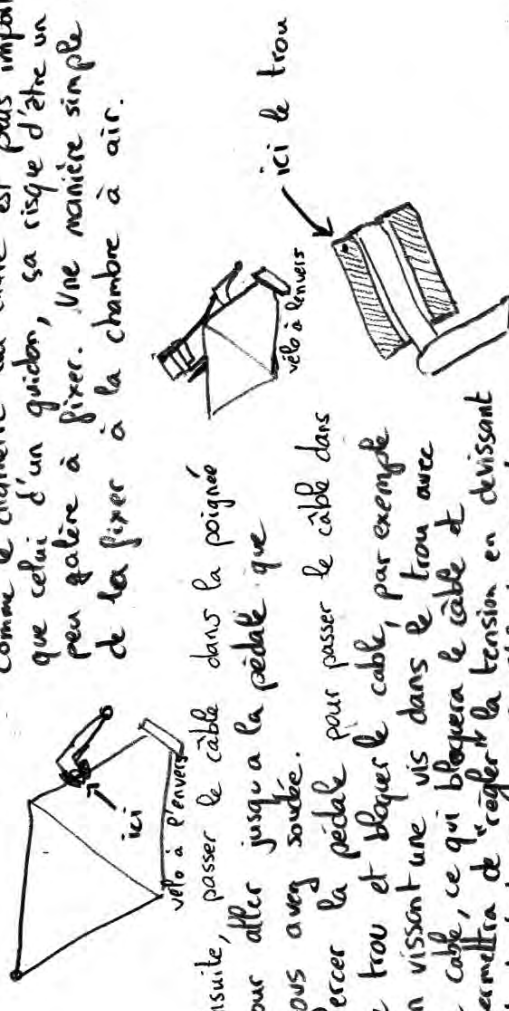 comme le diamètre du cadre est plus impor
que celui d'un guidon, ça risque d'être un
peu galère à fixer. Une manière simple
de la fixer à la chambre à air.
ici
vélo à l'envers
nsuite, passer le câble dans la poignée
our aller jusqu'a la pédale que
ous avez soudée.
ercer la pédale pour passer le câble dans
e trou et bloquer le cable, par exemple
n vissant une vis dans le trou avec
e cable, ce qui bloquera le câble et
ermettra de "régler" la tension en dévissant
vélo à l'envers
ici le trou